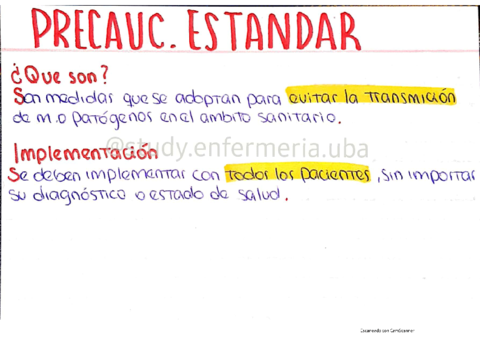 PRECAUC. ESTANDAR
¿Que son?
Son medidas que se adoptan para evitar la transmisión
de m.o patógenos en el ambito sanitario.
@study.enfermeria.uba
Implementación
Se deben implementar con todos los pacientes, sin importar
su diagnóstico o estado de salud.
Escaneado con CamScanner